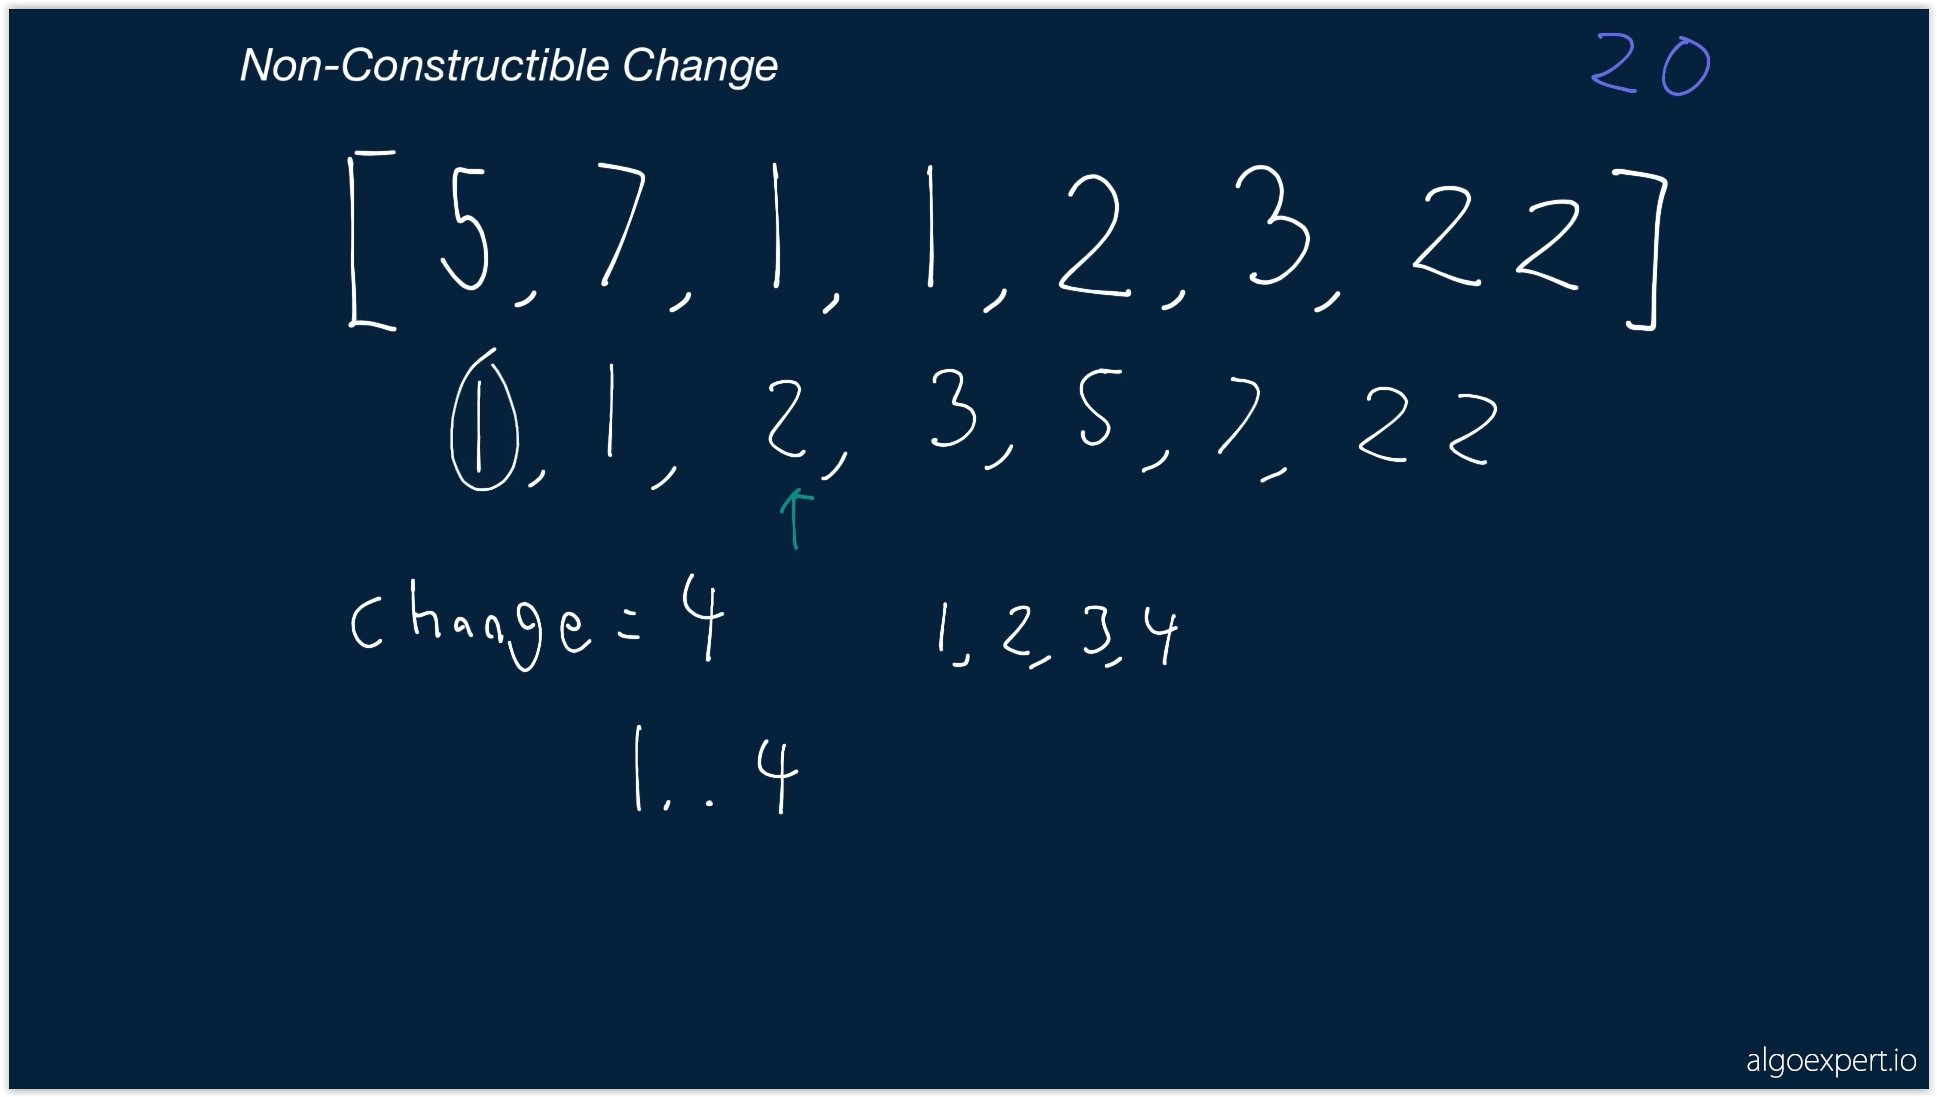 Non-Constructible Change
20
[ 5, 7, 1, 1, 2, 3, 22 ]
1, 1, 2, 3, 5, 7, 22
change = 4
1, 2, 3, 4
1.. 4
algoexpert.io